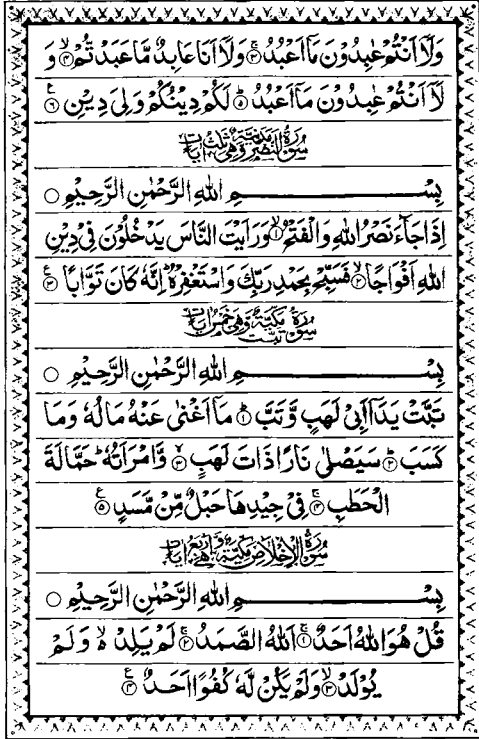 وَلَآ اَنْتُمْ عٰبِدُوْنَ مَآ اَعْبُدُ ۚ﴿۳﴾ وَلَآ اَنَا عَابِدٌ مَّا عَبَدْتُّمْ ۙ﴿۴﴾ وَ
لَآ اَنْتُمْ عٰبِدُوْنَ مَآ اَعْبُدُ ؕ﴿۵﴾ لَكُمْ دِيْنُكُمْ وَلِيَ دِيْنِ ﴿۶﴾ ع
سُوْرَةُ النَّصْرِ مَدَنِيَّةٌ وَّهِيَ ثَلٰثُ اٰيَاتٍ
بِسْمِ اللهِ الرَّحْمٰنِ الرَّحِيْمِ ○
اِذَا جَآءَ نَصْرُ اللهِ وَالْفَتْحُ ۙ﴿۱﴾ وَرَاَيْتَ النَّاسَ يَدْخُلُوْنَ فِيْ دِيْنِ
اللهِ اَفْوَاجًا ۙ﴿۲﴾ فَسَبِّحْ بِحَمْدِ رَبِّكَ وَاسْتَغْفِرْهُ ؕ اِنَّهٗ كَانَ تَوَّابًا ﴿۳﴾ ع
سُوْرَةُ تَبَّتْ مَكِّيَّةٌ وَّهِيَ خَمْسُ اٰيَاتٍ
بِسْمِ اللهِ الرَّحْمٰنِ الرَّحِيْمِ ○
تَبَّتْ يَدَآ اَبِيْ لَهَبٍ وَّتَبَّ ؕ﴿۱﴾ مَآ اَغْنٰى عَنْهُ مَالُهٗ وَمَا
كَسَبَ ؕ﴿۲﴾ سَيَصْلٰى نَارًا ذَاتَ لَهَبٍ ۙ﴿۳﴾ وَّامْرَاَتُهٗ ؕ حَمَّالَةَ
الْحَطَبِ ۚ﴿۴﴾ فِيْ جِيْدِهَا حَبْلٌ مِّنْ مَّسَدٍ ﴿۵﴾ ع
سُوْرَةُ الْاِخْلَاصِ مَكِّيَّةٌ وَّهِيَ اَرْبَعُ اٰيَاتٍ
بِسْمِ اللهِ الرَّحْمٰنِ الرَّحِيْمِ ○
قُلْ هُوَ اللهُ اَحَدٌ ۚ﴿۱﴾ اَللهُ الصَّمَدُ ۚ﴿۲﴾ لَمْ يَلِدْ ۙ۬ وَلَمْ
يُوْلَدْ ۙ﴿۳﴾ وَلَمْ يَكُنْ لَّهٗ كُفُوًا اَحَدٌ ﴿۴﴾ ع